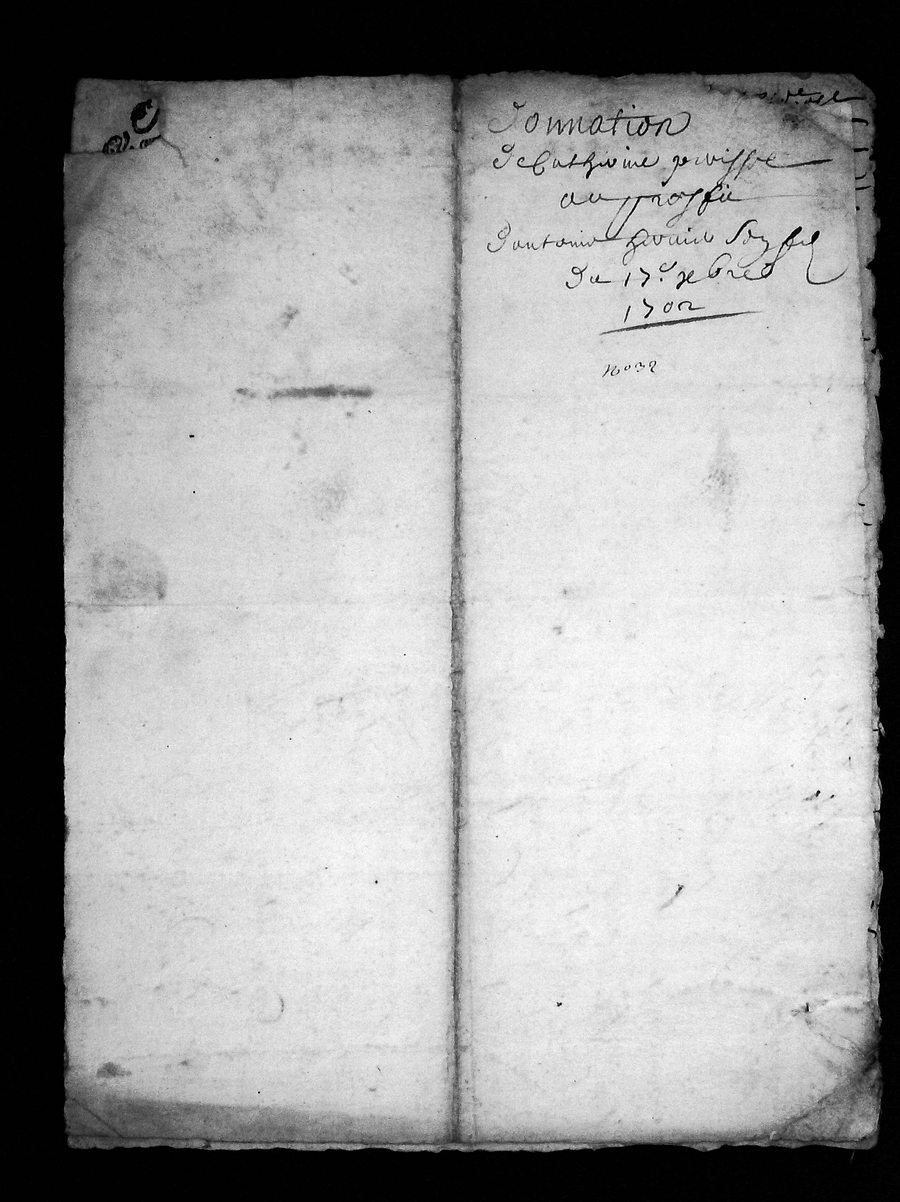 Donnation
de Catherine gervisse
au proffit
d'antoine heraud son fil
du 17e xebre
1702
No 32